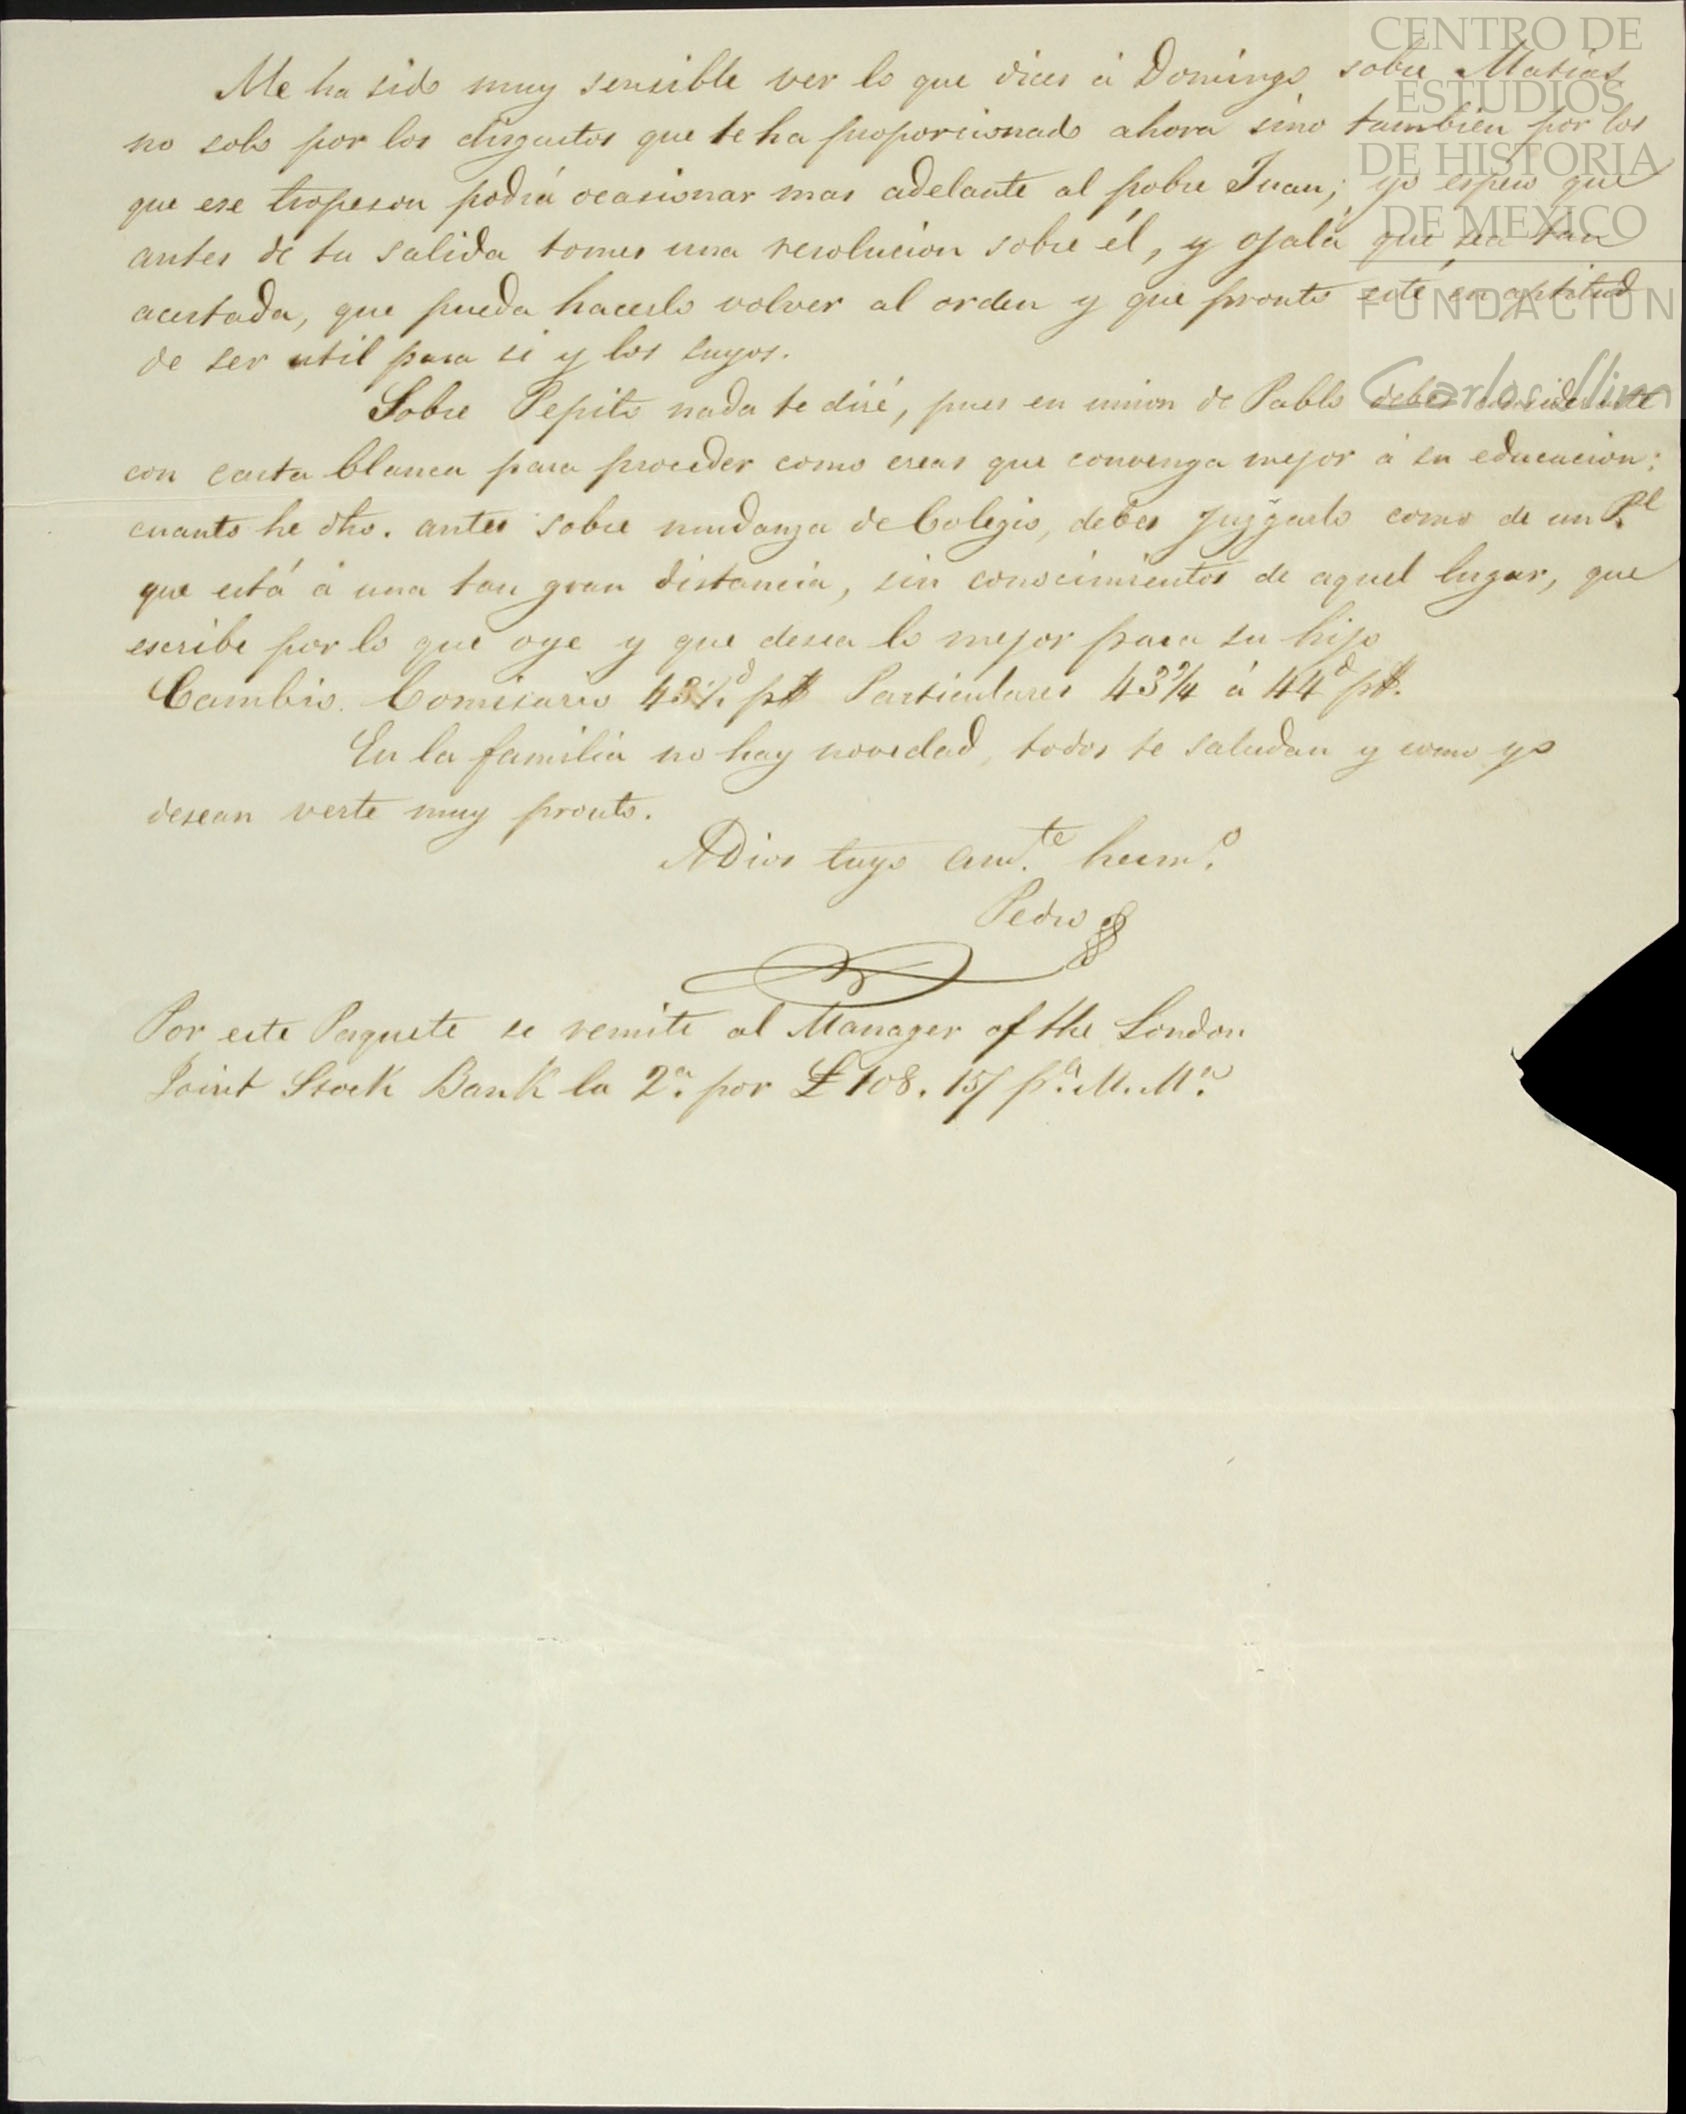 CENTRO DE
ESTUDIOS
DE HISTORIA
DE MEXICO
FUNDACIÓN
Carlos Slim
Me ha sido muy sensible ver lo que dices á Domingo sobre Matias
no solo por los disgustos que te ha proporcionado ahora sino tambien por los
que ese tropeson podrá ocasionar mas adelante al pobre Juan; yo espero que
antes de tu salida tomes una resolucion sobre él, y ojalá que sea tan
acertada, que pueda hacerlo volver al orden y que pronto esté en aptitud
de ser util para si y los suyos.
Sobre Pepito nada te diré, pues en union de Pablo debes considerarte
con carta blanca para proceder como creas que convenga mejor á su educacion:
cuanto he dho. antes sobre mudanza de Colegio, debes juzgarlo como de un P.
que está á una tan gran distancia, sin conocimientos de aquel lugar, que
escribe por lo que oye y que desea lo mejor para su hijo
Cambio. Comisario 43½ᵈ p$ Particulares 43¾ á 44ᵈ p$.
En la familia no hay novedad, todos te saludan y como yo
desean verte muy pronto.
ADios tuyo am.ᵗᵉ herm.ᵒ
Pedro
Por este Paquete se remite al Manager of the London
Joint Stock Bank la 2.ᵃ por £108.15/ p.ᵃ M. M.ᵒ